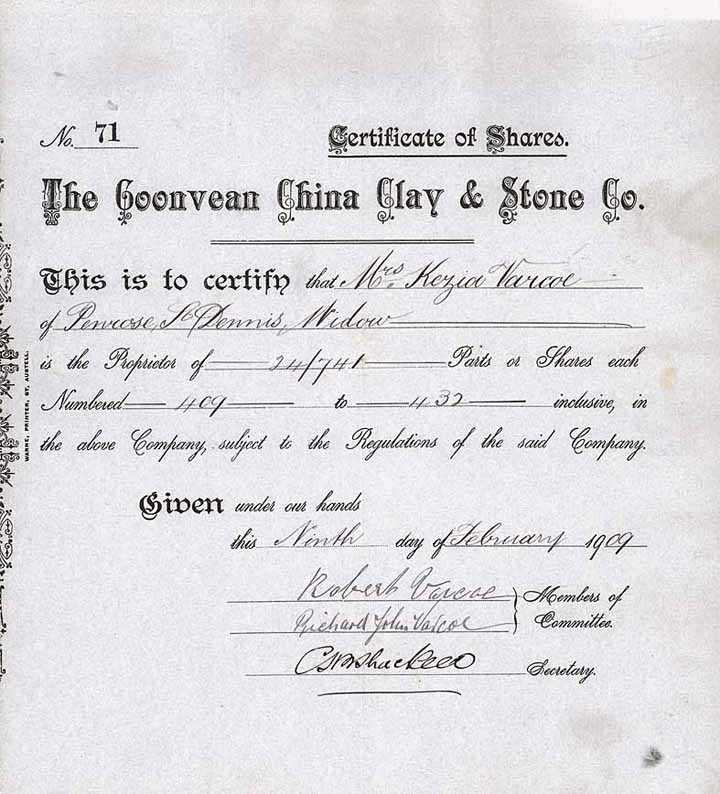 No. 71
Certificate of Shares.
The Goonvean China Clay & Stone Co.
This is to certify that Mrs. Kezia Varcoe
of Penrose, St Dennis, Widow
is the Proprietor of 24/741 Parts or Shares each
Numbered 409 to 432 inclusive, in
the above Company, subject to the Regulations of the said Company.
Given under our hands
this Ninth day of February 1909
Robert Varcoe
Members of
Richard John Varcoe
Committee.
Secretary.
WARNE, PRINTER, ST. AUSTELL.